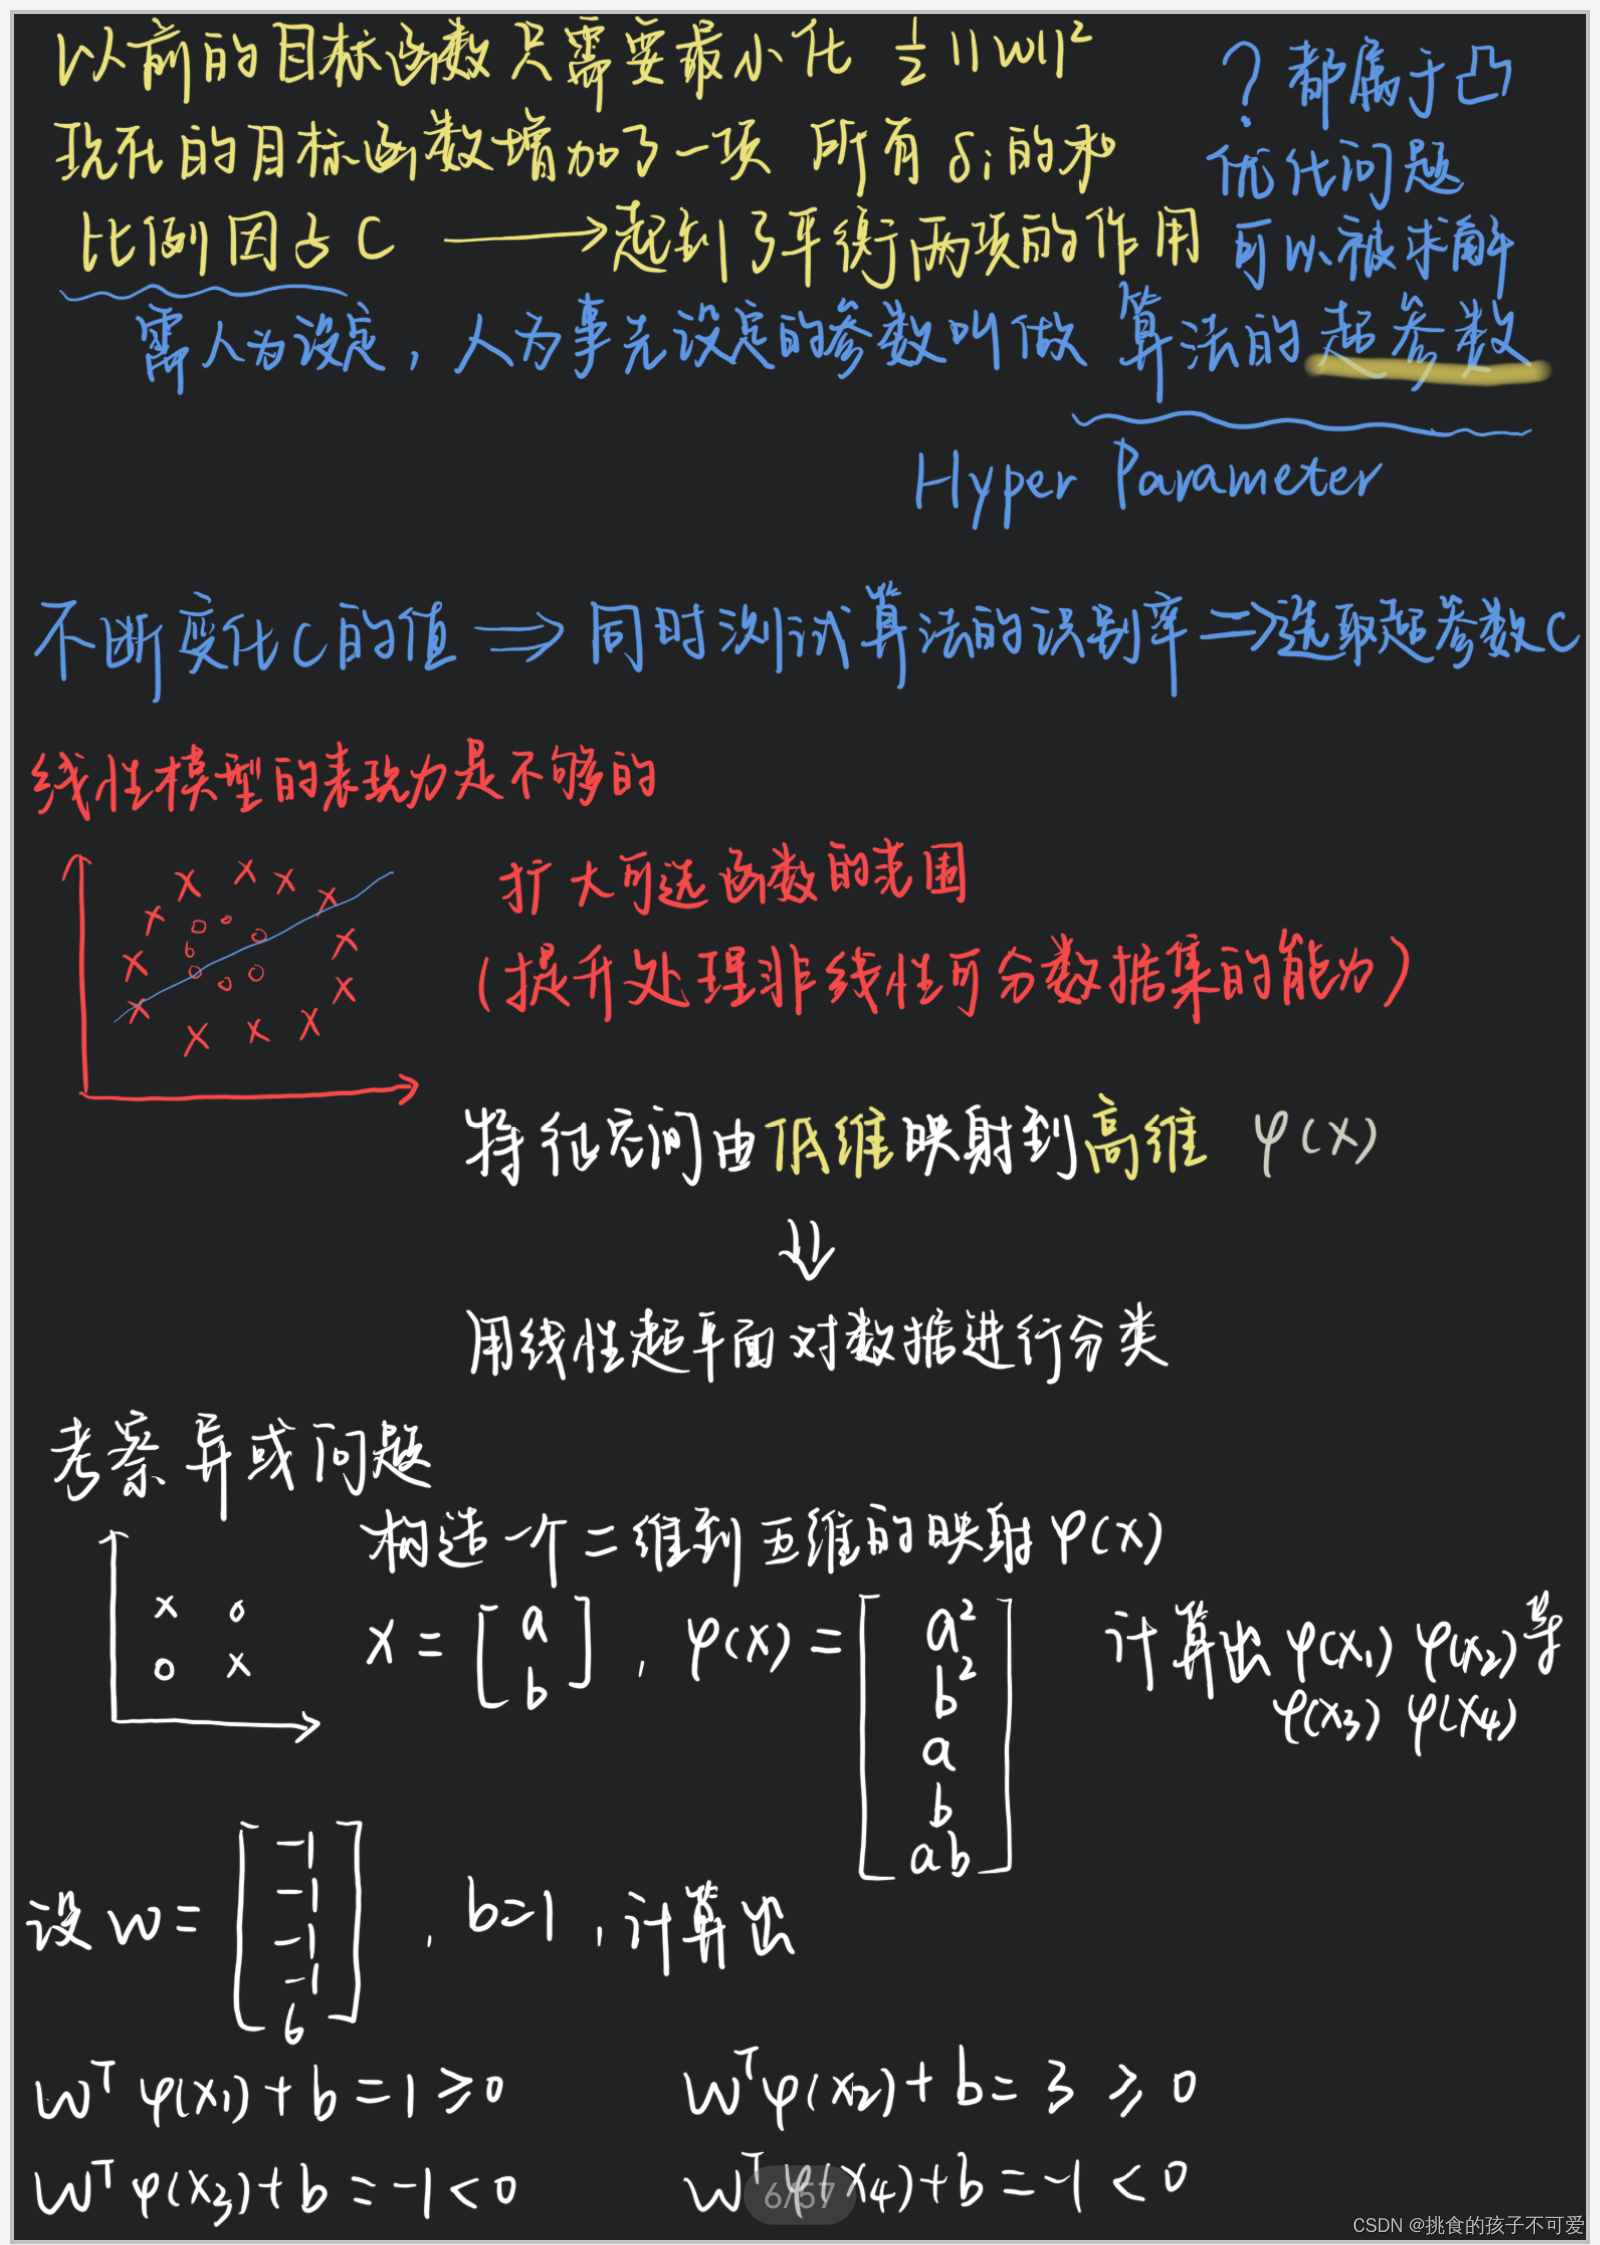 以前的目标函数只需要最小化 ½||w||²
现在的目标函数增加了一项 所有 δi 的和
比例因子 C ⟶ 起到了平衡两项的作用
? 都属于凸
优化问题
可以被求解
需人为设定, 人为事先设定的参数叫做 算法的超参数
Hyper Parameter
不断变化C的值 ⟹ 同时测试算法的识别率 ⟹ 选取超参数C
线性模型的表现力是不够的
扩大可选函数的范围
(提升处理非线性可分数据集的能力)
特征空间由低维映射到高维 φ(X)
⇓
用线性超平面对数据进行分类
考察异或问题
构造一个二维到五维的映射 φ(X)
X = [a
b] , φ(X) = [a²
b²
a
b
ab]
计算出 φ(X₁) φ(X₂)等
φ(X₃) φ(X₄)
设 W = [-1
-1
-1
-1
6] , b=1, 计算出
Wᵀ φ(X₁) + b = 1 ≥ 0
Wᵀ φ(X₂) + b = 3 ≥ 0
Wᵀ φ(X₃) + b = -1 < 0
Wᵀ φ(X₄) + b = -1 < 0
6/57
CSDN @挑食的孩子不可爱